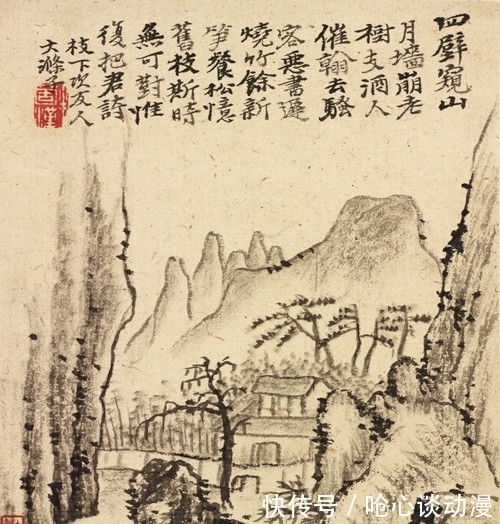 四壁窺山
月墻崩老
樹支酒人
催翰去騷
客惡書遲
燒竹餘新
筍餐松憶
舊枝斯時
無可對惟
復把君詩
枝下次友人
大滌子
快传号 / 呛心谈动漫